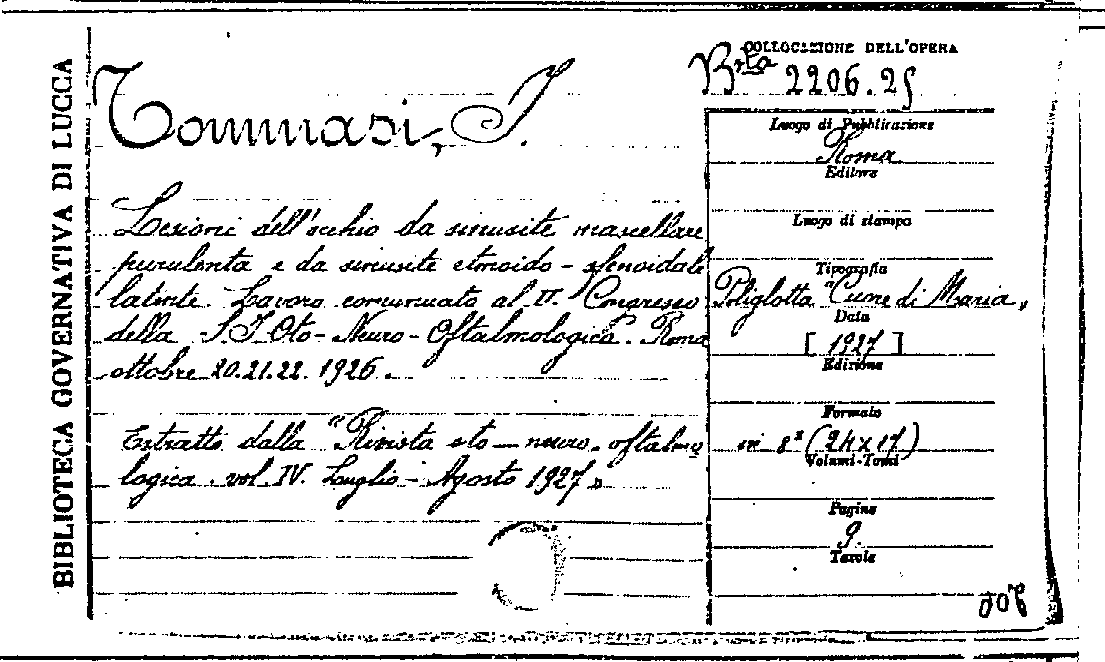 BIBLIOTECA GOVERNATIVA DI LUCCA
COLLOCAZIONE DELL'OPERA
Brta 2206.25
Tommasi, I.
Lesioni dell'occhio da sinusite mascellare
purulenta e da sinusite etmoido-sfenoidale
latente. Lavoro comunicato al II° Congresso
della S I Oto-Neuro-Oftalmologica. Roma
ottobre 20.21.22. 1926.
Estratto dalla "Rivista oto-neuro-oftalmo
logica. vol IV. Luglio-Agosto 1927"
Luogo di Pubblicazione
Roma
Editore
Luogo di stampa
Tipografia
Poliglotta "Cuore di Maria"
Data
[1927]
Edizione
Formato
in 8° (24x17)
Volumi-Tomi
Pagine
9.
Tavole